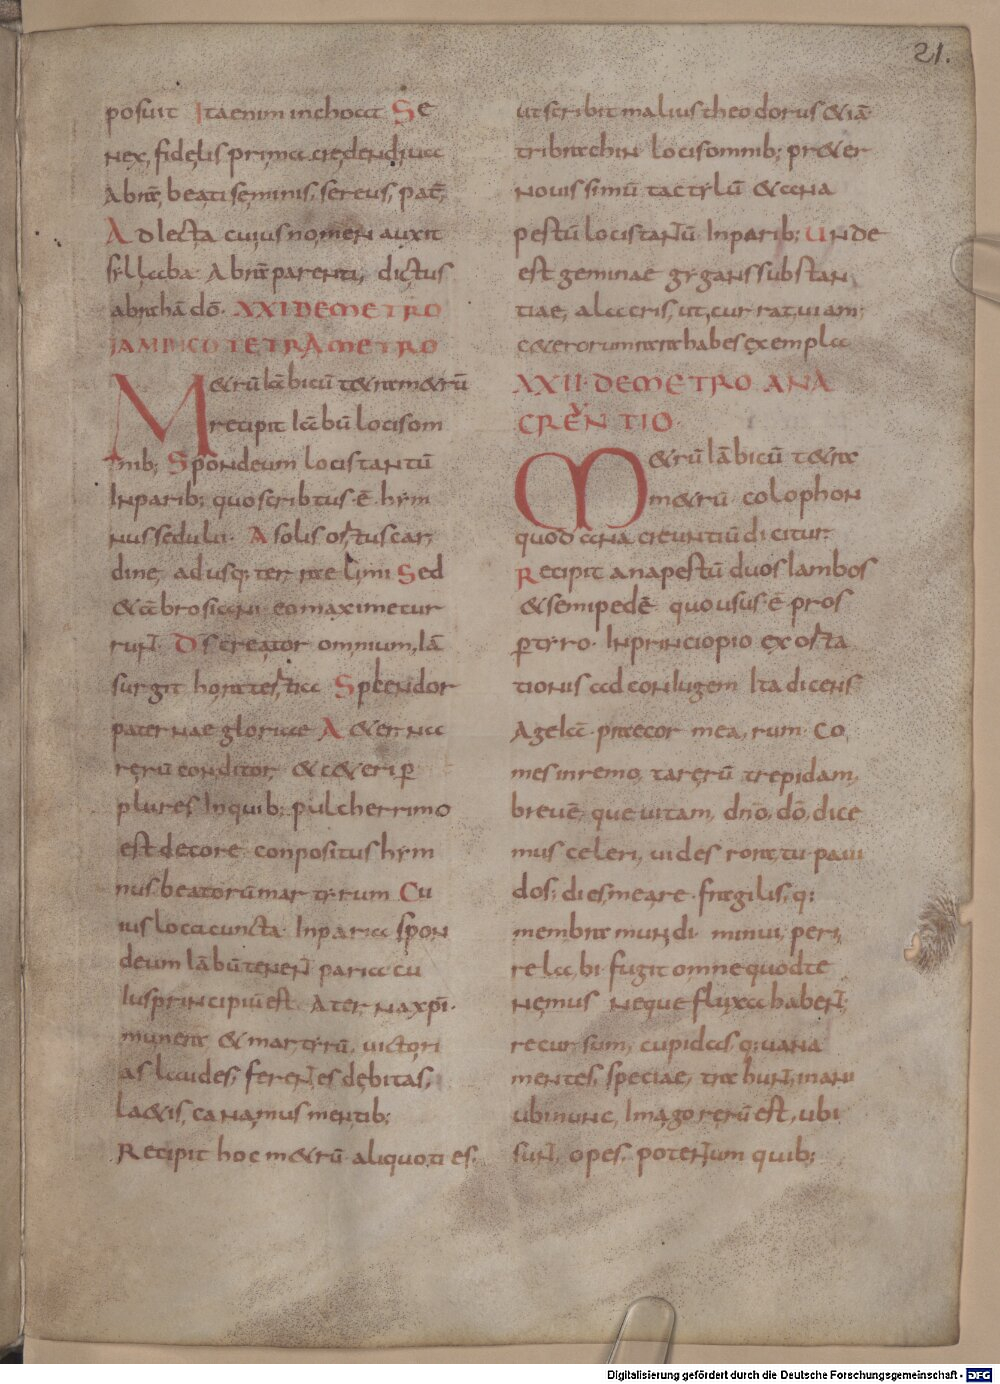 21.
posuit Itaenim inchoat Se
nex, fidelis prima credendi uia
Abrã, beati seminis, sereus, pat̄,
Adlecta cuius nomen auxit
syllaba Abrã parenti, dictus
abrahã dō· XXI DEMETRO
IAMBICO TETRAMETRO
M&rũ iãbicũ t&ram&rũ
recipit iãbũ locisom
nib; Spondeum locistantũ
Inparib; quoscribtus·ē·hym
nus sedulii· A solis ortus car,
dine, adusq; ter, rae limi Sed
&ãbrosiani eomaximecur
run̄t Dš creator omnium, iã
surgit hora ter,tia Splendor
paternae gloriae A&erna
rerũ conditor, &c&eri p̄
plures Inquib; pulcherrimo
est decore conpositus hym
nus beatorũ martyrum Cu
ius loca cuncta Inparia spon
deum iãbũ tenent paria cu
ius principiũ est A ter,na xp̄i·
munera & mar,tyrũ, uictori
as laudes, ferentes debitas,
la&is, canamus mentib;
Recipit hoc m&rũ aliquoti es·
utscribit malius theodorus &iã
tribrachin locisomnib; pr&er
nouissimũ tactylũ &ana
pestũ locistantũ Inparib; Unde
est geminae gygans substan
tiae, alacris, ut, cur rat uiam;
c&erorum rara habes exempla
XXII·DEMETRO ANA
CREN TIO·
M&rũ iãbicũ t&ra
m&rũ colophon
quod anacreuntiũ dicitur·
Recipit anapestũ duos Iambos
&semipedē quousus·ē·pros
p̄tyro· Inprinciopio exorta
tionis ad coniugem Ita dicens
Age ia· praecor mea, rum· Co,
mes inremo, tarerũ trepidam,
breuē, que uitam, dñō, dō, dice
mus celeri, uides rota, tu paui
dos; dies, meare· fragilis, q;
membra mundi minui, peri,
re la, bi· fugit omne quod te
nemus neque fluxa habent;
recur, sum, cupidas, q; uana
mentes, speciae, trahunt, inani
ubi nunc, Imago rerũ est, ubi
sunt, opes, potentum quib;
Digitalisierung gefördert durch die Deutsche Forschungsgemeinschaft - DFG